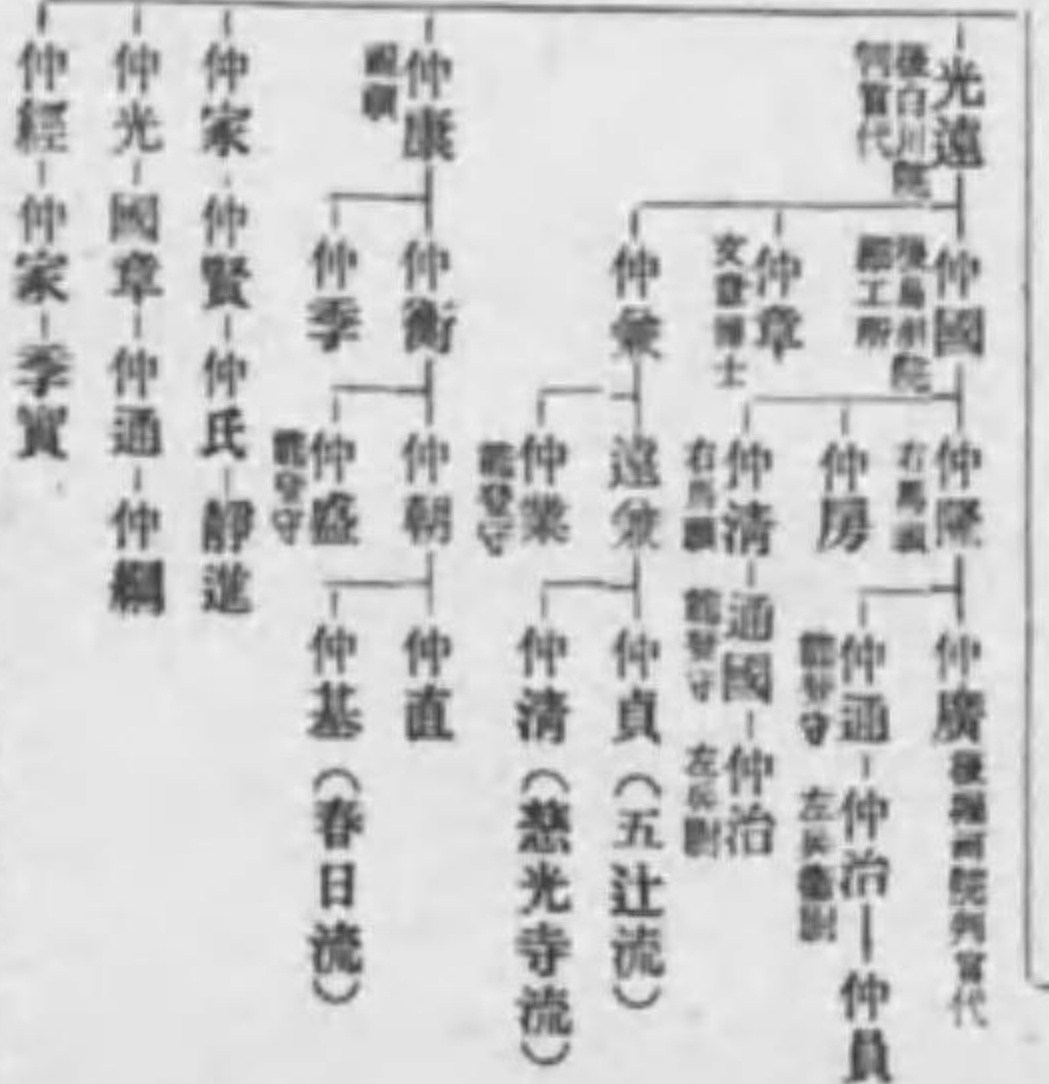 光遠
後白川院
判官代
仲國
後鳥羽院
細工所
仲隆
右馬頭
仲廣
後堀河院判官代
仲通
能登守
仲治
左兵衞尉
仲員
仲房
仲清
右馬頭
通國
能登守
仲治
左兵尉
仲章
文章博士
仲兼
遠兼
仲貞(五辻流)
仲清(慈光寺流)
仲業
能登守
仲康
仲衡
仲朝
仲直
仲基(春日流)
仲盛
能登守
仲季
仲家
仲賢
仲氏
靜進
仲光
國章
仲通
仲綱
仲經
仲家
季實